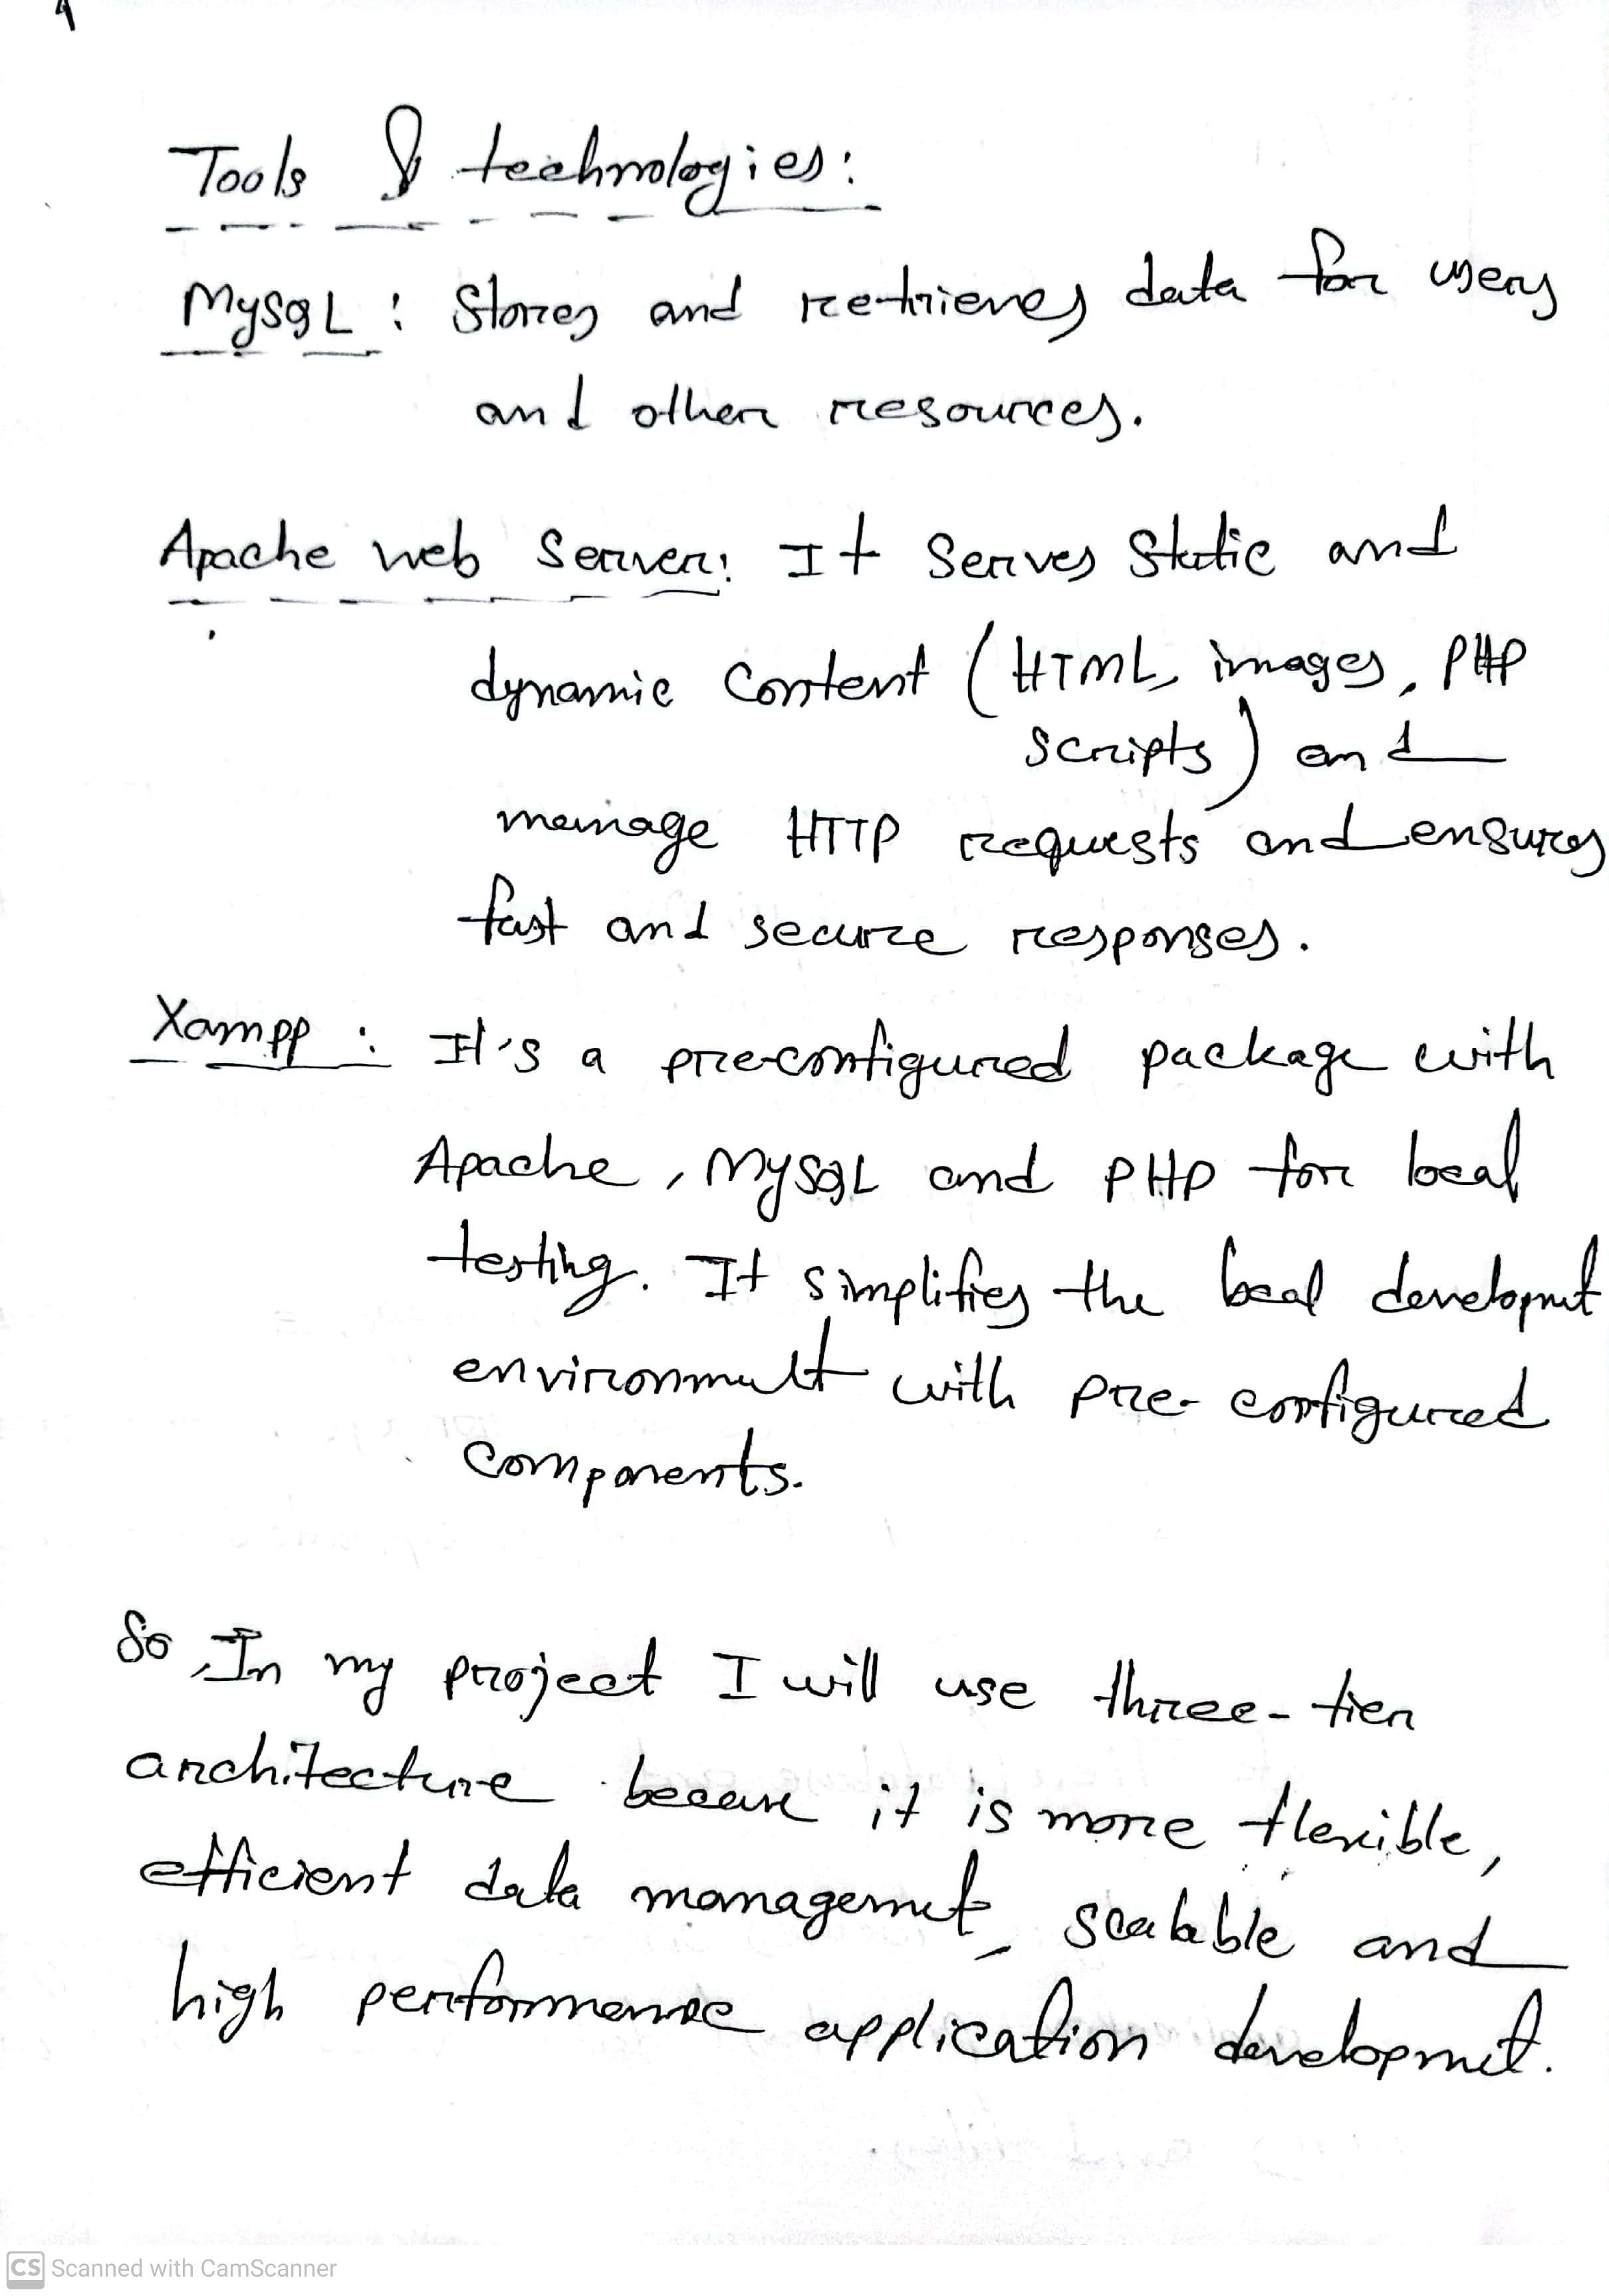 Tools & technologies:
MySQL : Stores and retrieves data for users
and other resources.
Apache web Server: It Serves Static and
dynamic Content (HTML, images, PHP
scripts) and
manage HTTP requests and ensures
fast and secure responses.
Xampp : It's a pre-configured package with
Apache, MySQL and PHP for local
testing. It simplifies the local development
environment with pre-configured
components.
So, In my project I will use three-tier
architecture because it is more flexible,
efficient data management, scalable and
high performance application development.
CS Scanned with CamScanner